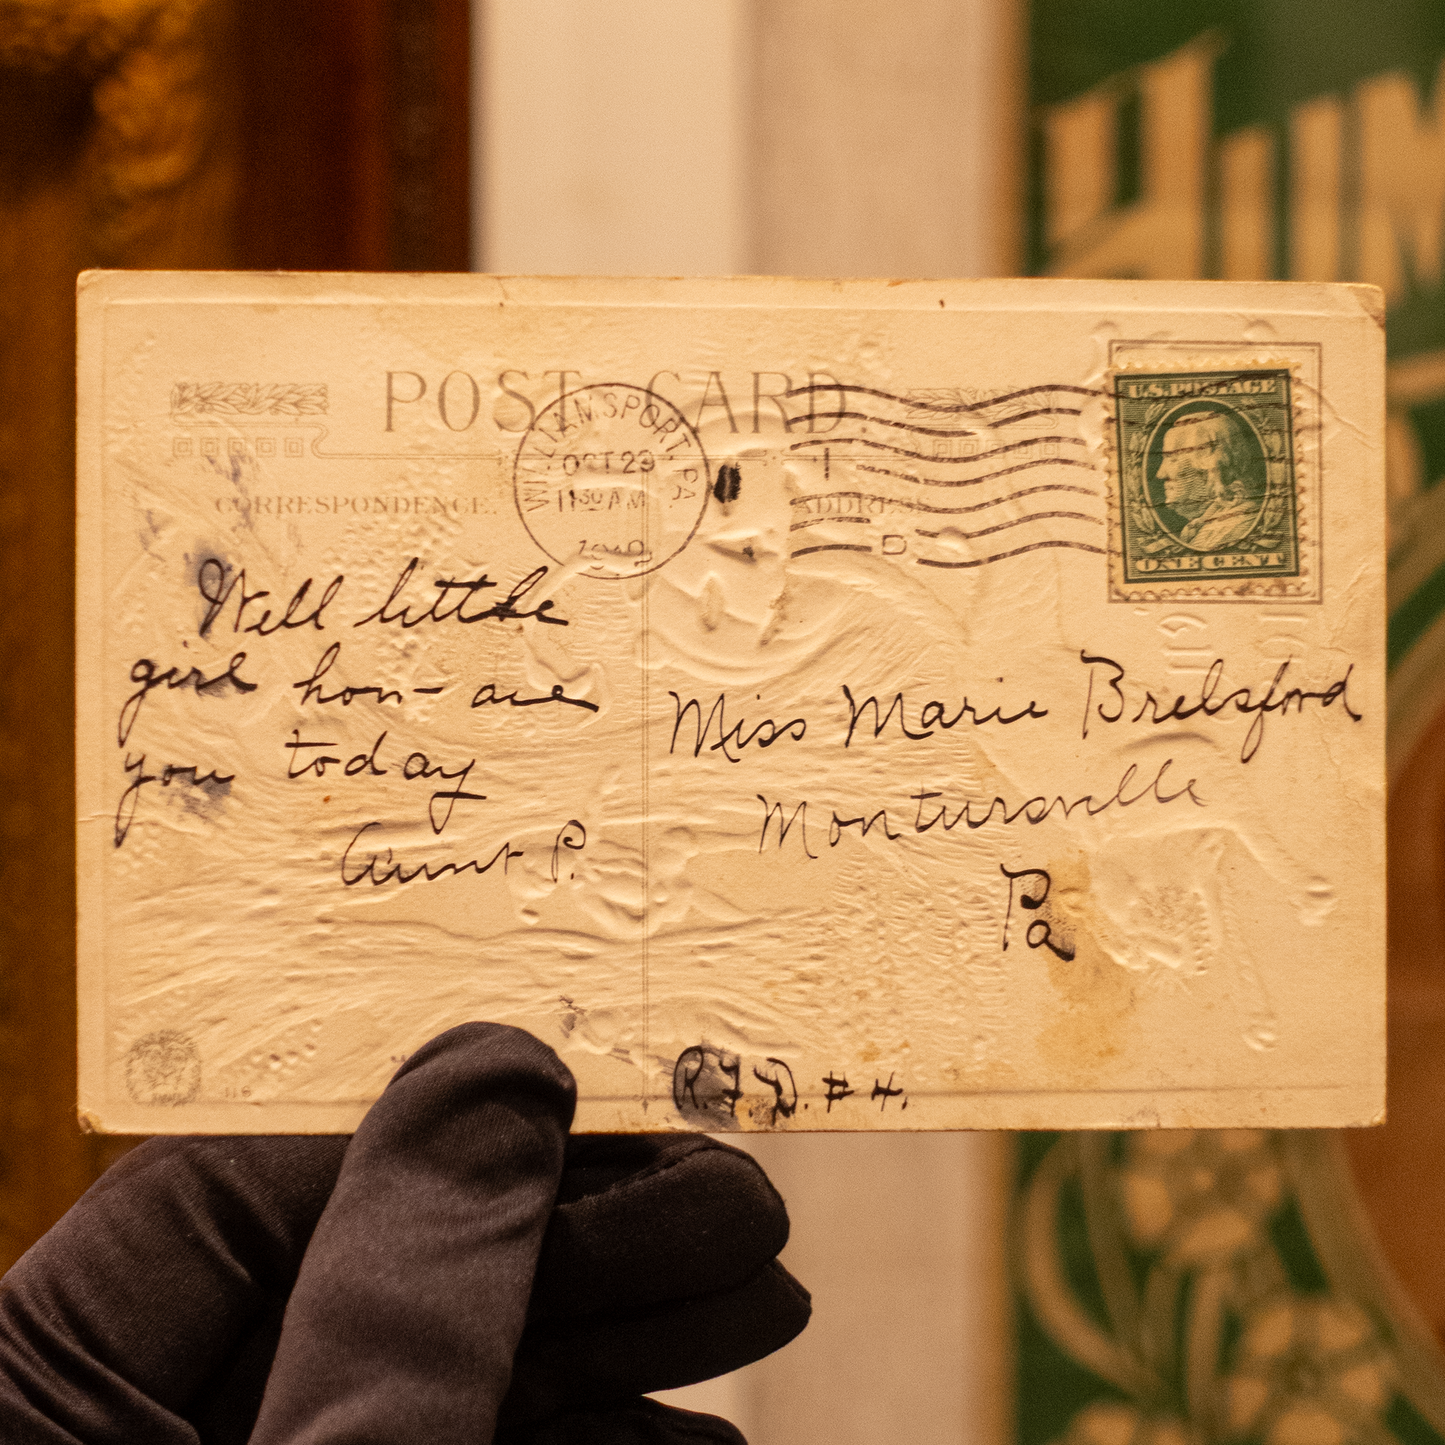 POST CARD.
WILLIAMSPORT, PA.
OCT 29
11 30 AM
1
D
U.S. POSTAGE
ONE CENT
CORRESPONDENCE.
ADDRESS
Well little
girl how are
you today
Aunt P.
Miss Marie Brelsford
Montursville
Pa
R.F.D. # 4.
118
HUM